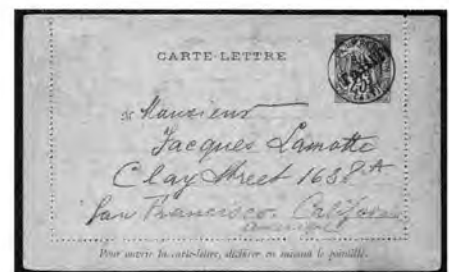 CARTE-LETTRE
M Monsieur
Jacques Lamotte
Clay Street 1638 A
San Francisco. California
Pour ouvrir la carte-lettre, déchirer en suivant le pointillé.